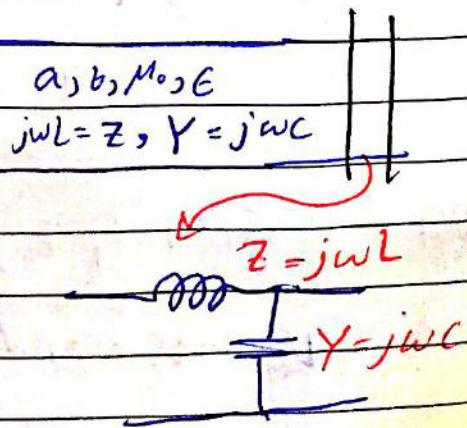 a, b, μ₀, ϵ
jωL = Z, Y = jωC
Z = jωL
Y = jωC